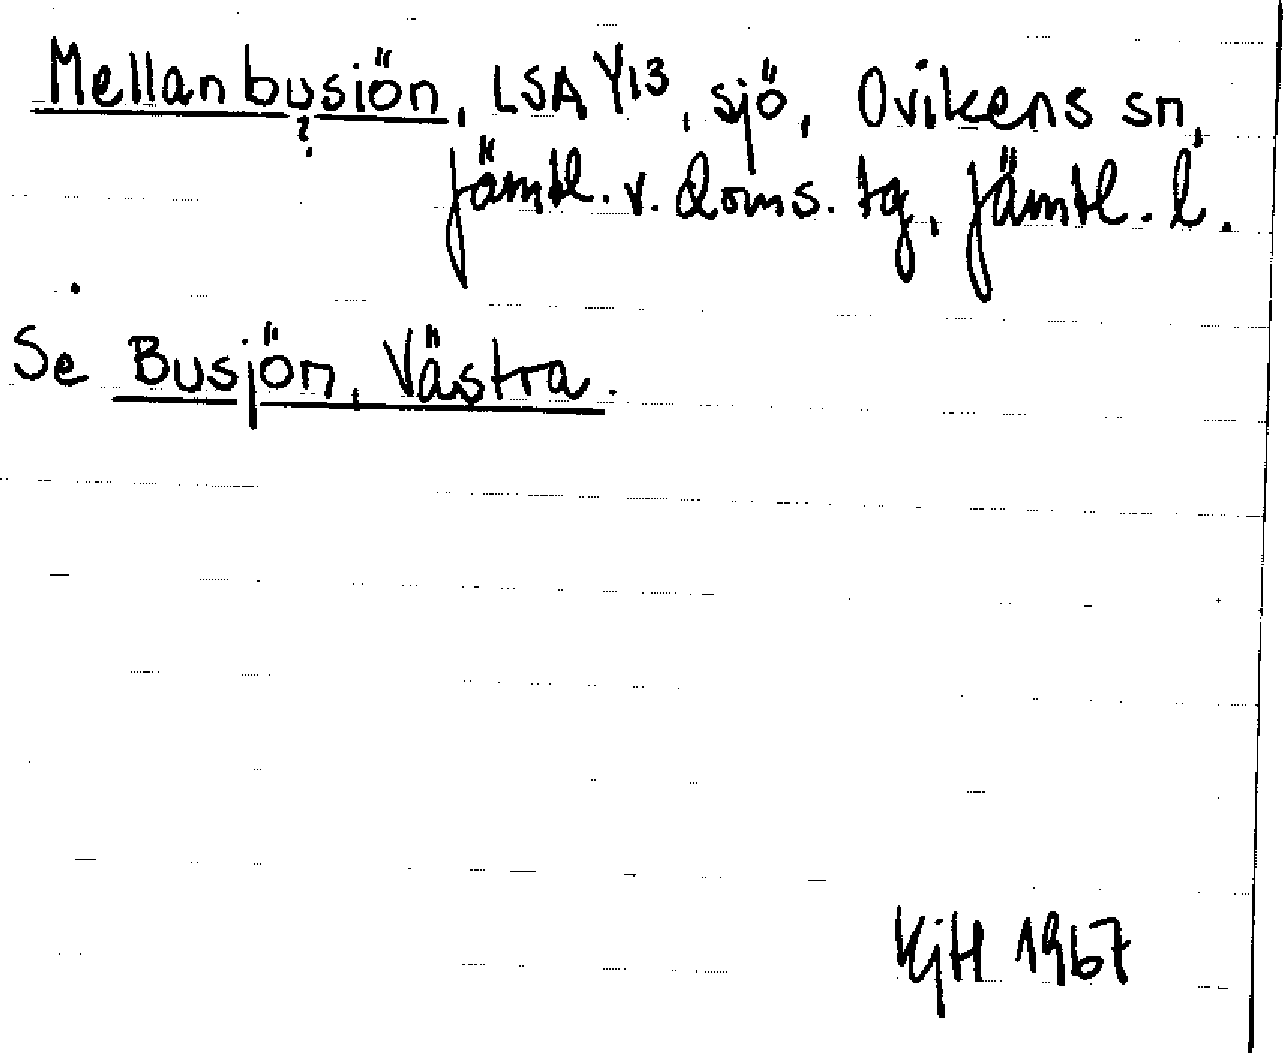 Mellanbusiön, LSA Y13, sjö, Ovikens sn,
?
Jämtl. v. doms. tg, Jämtl. l.
Se Busjön, Västra.
VjH 1967